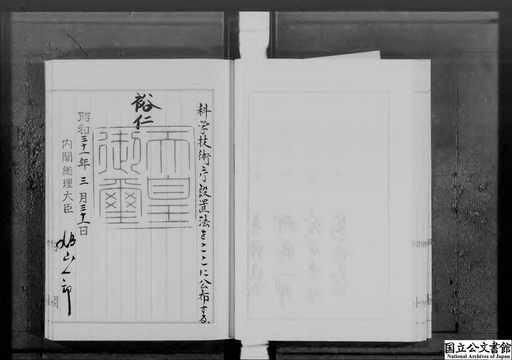 科学技術庁設置法をここに公布する。
裕仁
天皇御璽
昭和三十一年三月三十一日
内閣総理大臣 鳩山一郎
国立公文書館
National Archives of Japan